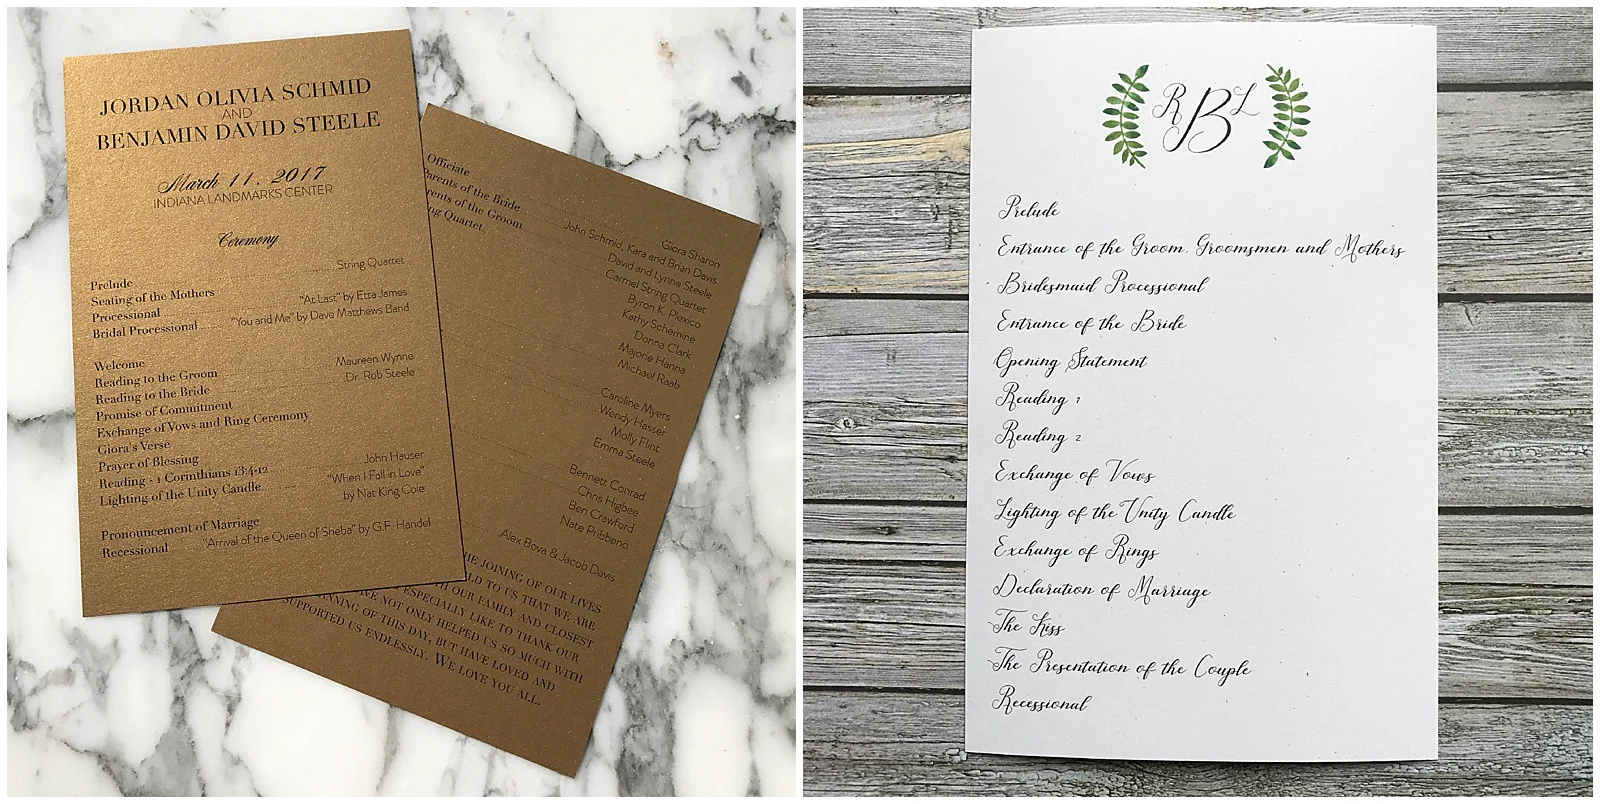 JORDAN OLIVIA SCHMID
AND
BENJAMIN DAVID STEELE
March 11, 2017
INDIANA LANDMARKS CENTER
Ceremony
Prelude String Quartet
Seating of the Mothers
Processional "At Last" by Etta James
Bridal Processional "You and Me" by Dave Matthews Band
Welcome Maureen Wynne
Reading to the Groom Dr. Rob Steele
Reading to the Bride
Promise of Commitment
Exchange of Vows and Ring Ceremony
Giora's Verse
Prayer of Blessing
Reading - 1 Corinthians 13:4-12 John Hauser
Lighting of the Unity Candle "When I Fall in Love"
by Nat King Cole
Pronouncement of Marriage
Recessional "Arrival of the Queen of Sheba" by G.F. Handel
Officiate Giora Sharon
Parents of the Bride John Schmid, Kara and Brian Davis
rents of the Groom David and Lynne Steele
ng Quartet Carmel String Quartet
Byron K. Plexico
Kathy Schemine
Donna Clark
Majorie Hanna
Michael Raab
Caroline Myers
Wendy Hasser
Molly Flint
Emma Steele
Bennett Conrad
Chris Higbee
Ben Crawford
Nate Pribbeno
Alex Bova & Jacob Davis
HE JOINING OF OUR LIVES
LD TO US THAT WE ARE
H OUR FAMILY AND CLOSEST
ESPECIALLY LIKE TO THANK OUR
VE NOT ONLY HELPED US SO MUCH WITH
NNING OF THIS DAY, BUT HAVE LOVED AND
SUPPORTED US ENDLESSLY. WE LOVE YOU ALL.
R B L
Prelude
Entrance of the Groom, Groomsmen and Mothers
Bridesmaid Processional
Entrance of the Bride
Opening Statement
Reading 1
Reading 2
Exchange of Vows
Lighting of the Unity Candle
Exchange of Rings
Declaration of Marriage
The Kiss
The Presentation of the Couple
Recessional